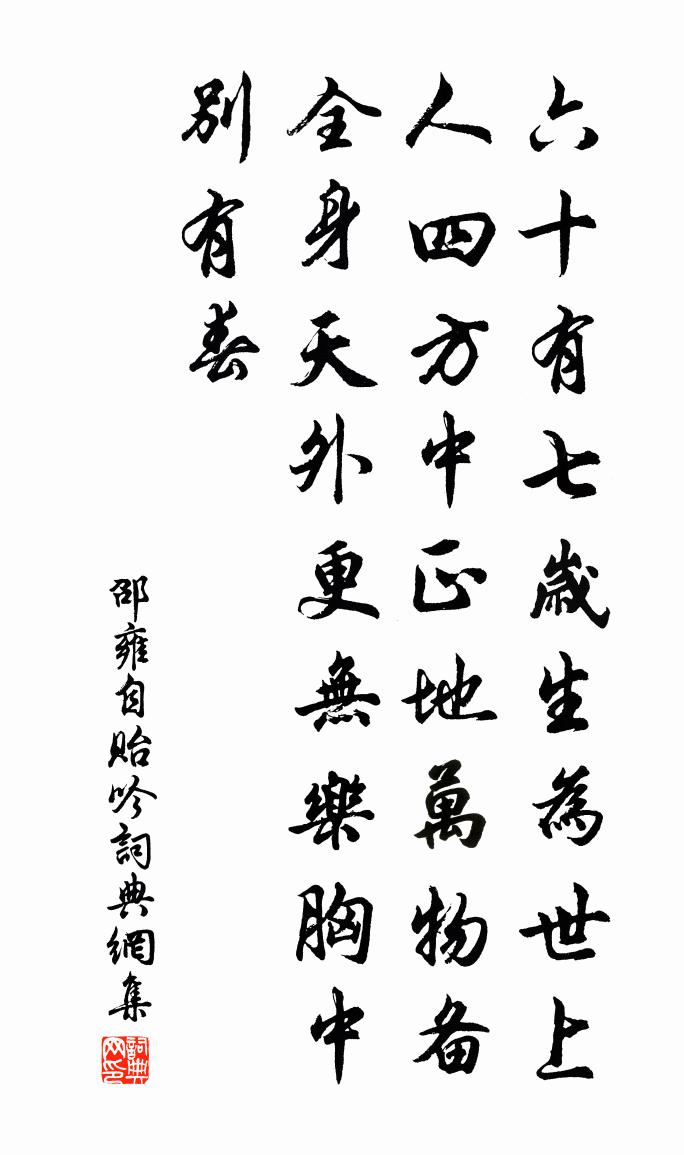 六十有七歲生為世上
人四方中正地萬物备
全身天外更無樂胸中
別有春
邵雍自貽吟詞典網集
詞典网印